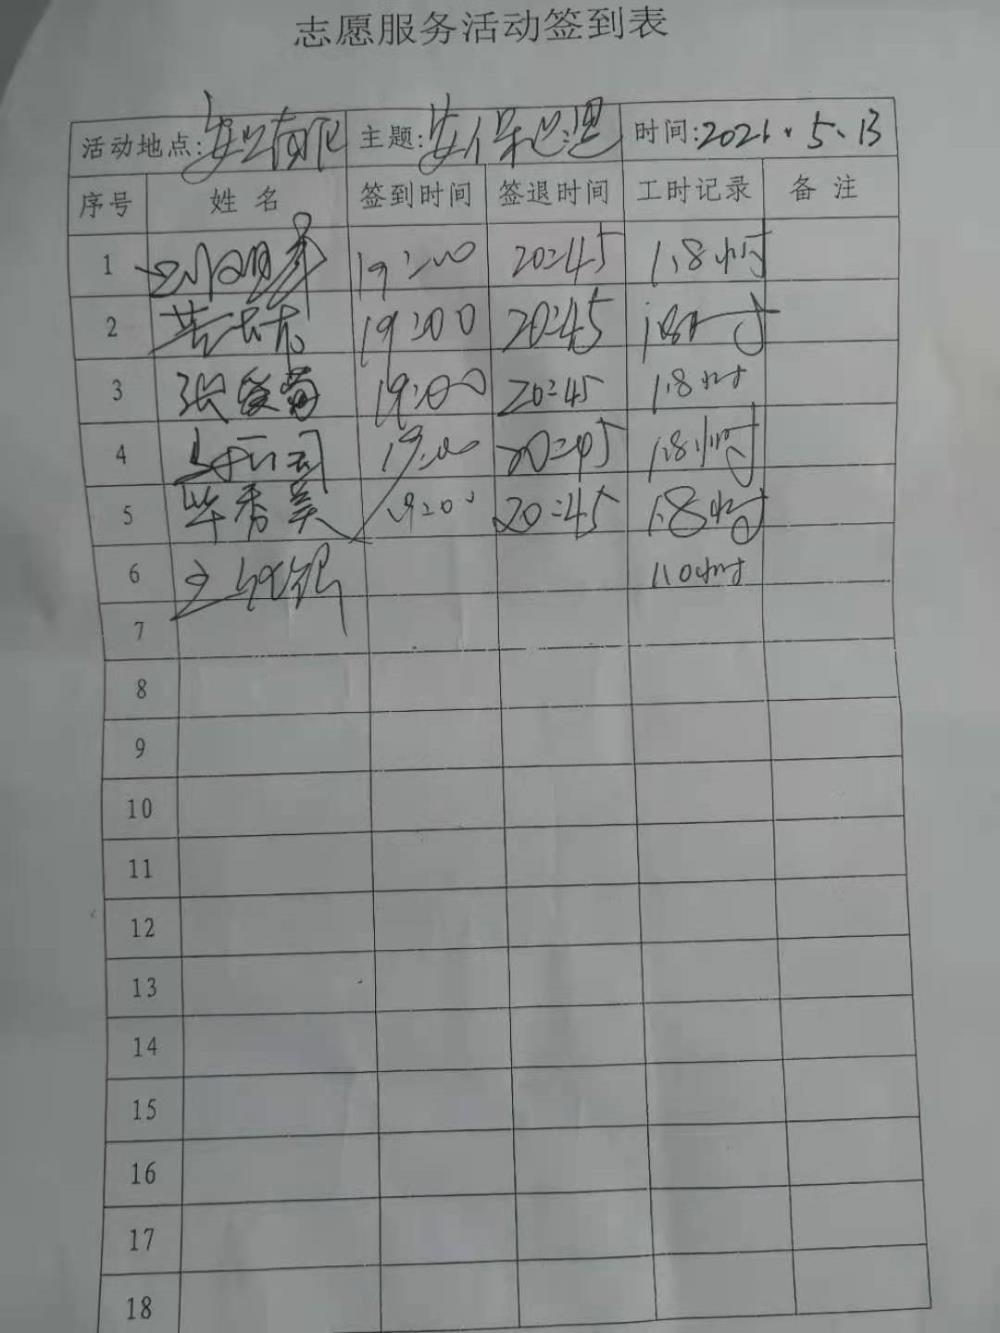 志愿服务活动签到表
活动地点: 主题:安保巡逻 时间:2021.5.13
序号 姓名 签到时间 签退时间 工时记录 备注
1 19:00 20:45 1.8小时
2 19:00 20:45 1.8小时
3 张爱菊 19:00 20:45 1.8小时
4 19:00 20:45 1.8小时
5 毕秀美 19:00 20:45 1.8小时
6 1.0小时
7
8
9
10
11
12
13
14
15
16
17
18